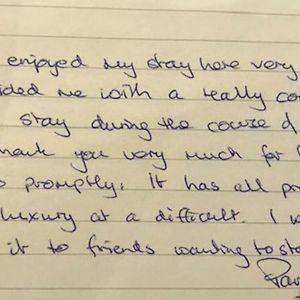 enjoyed my stay here very
ided me with a really co
stay during the course o
hank you very much for
promptly. It has all pr
luxury at a difficult. I w
it to friends wanting to st
Pa